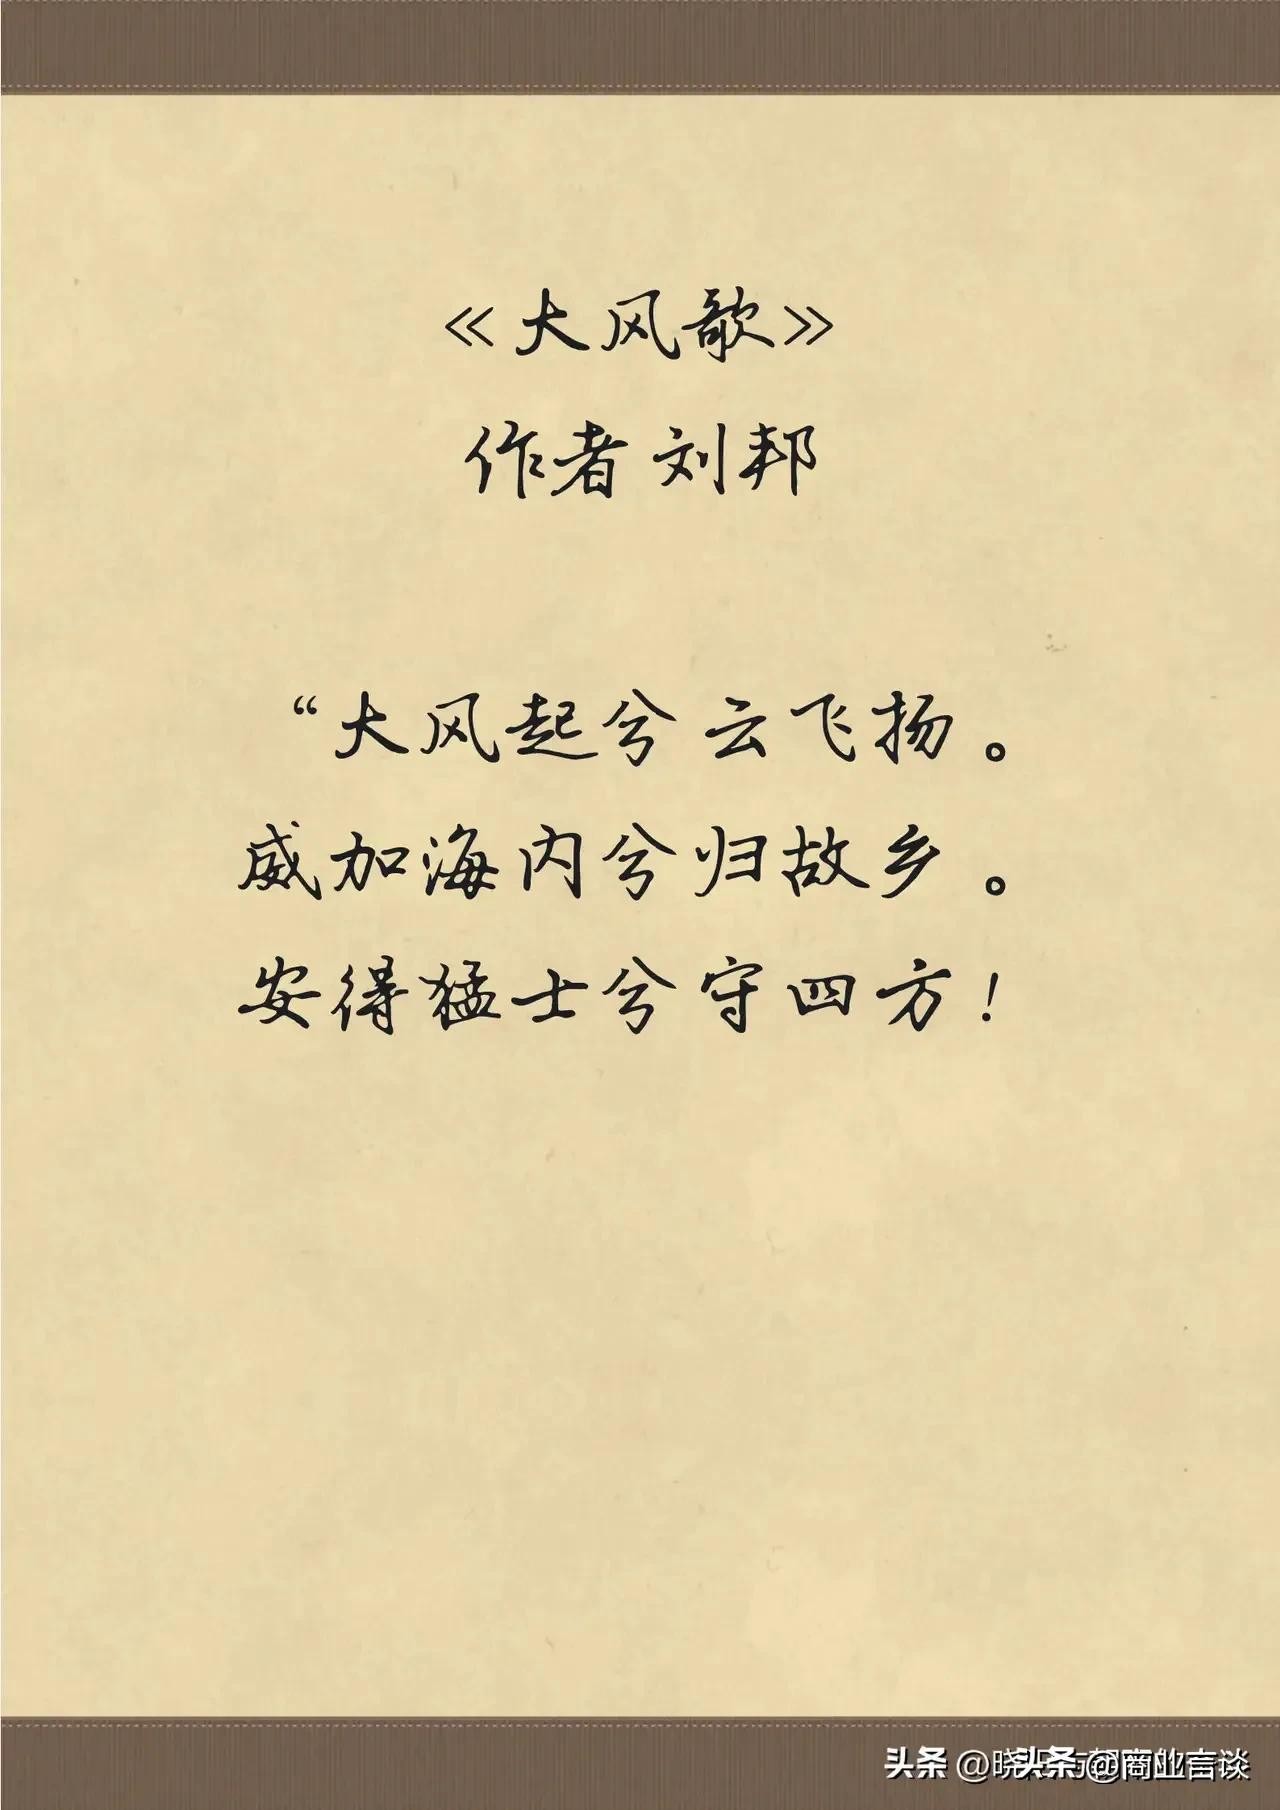 《大风歌》
作者 刘邦
“大风起兮云飞扬。
威加海内兮归故乡。
安得猛士兮守四方！
头条 @晓 头条 @商业言谈